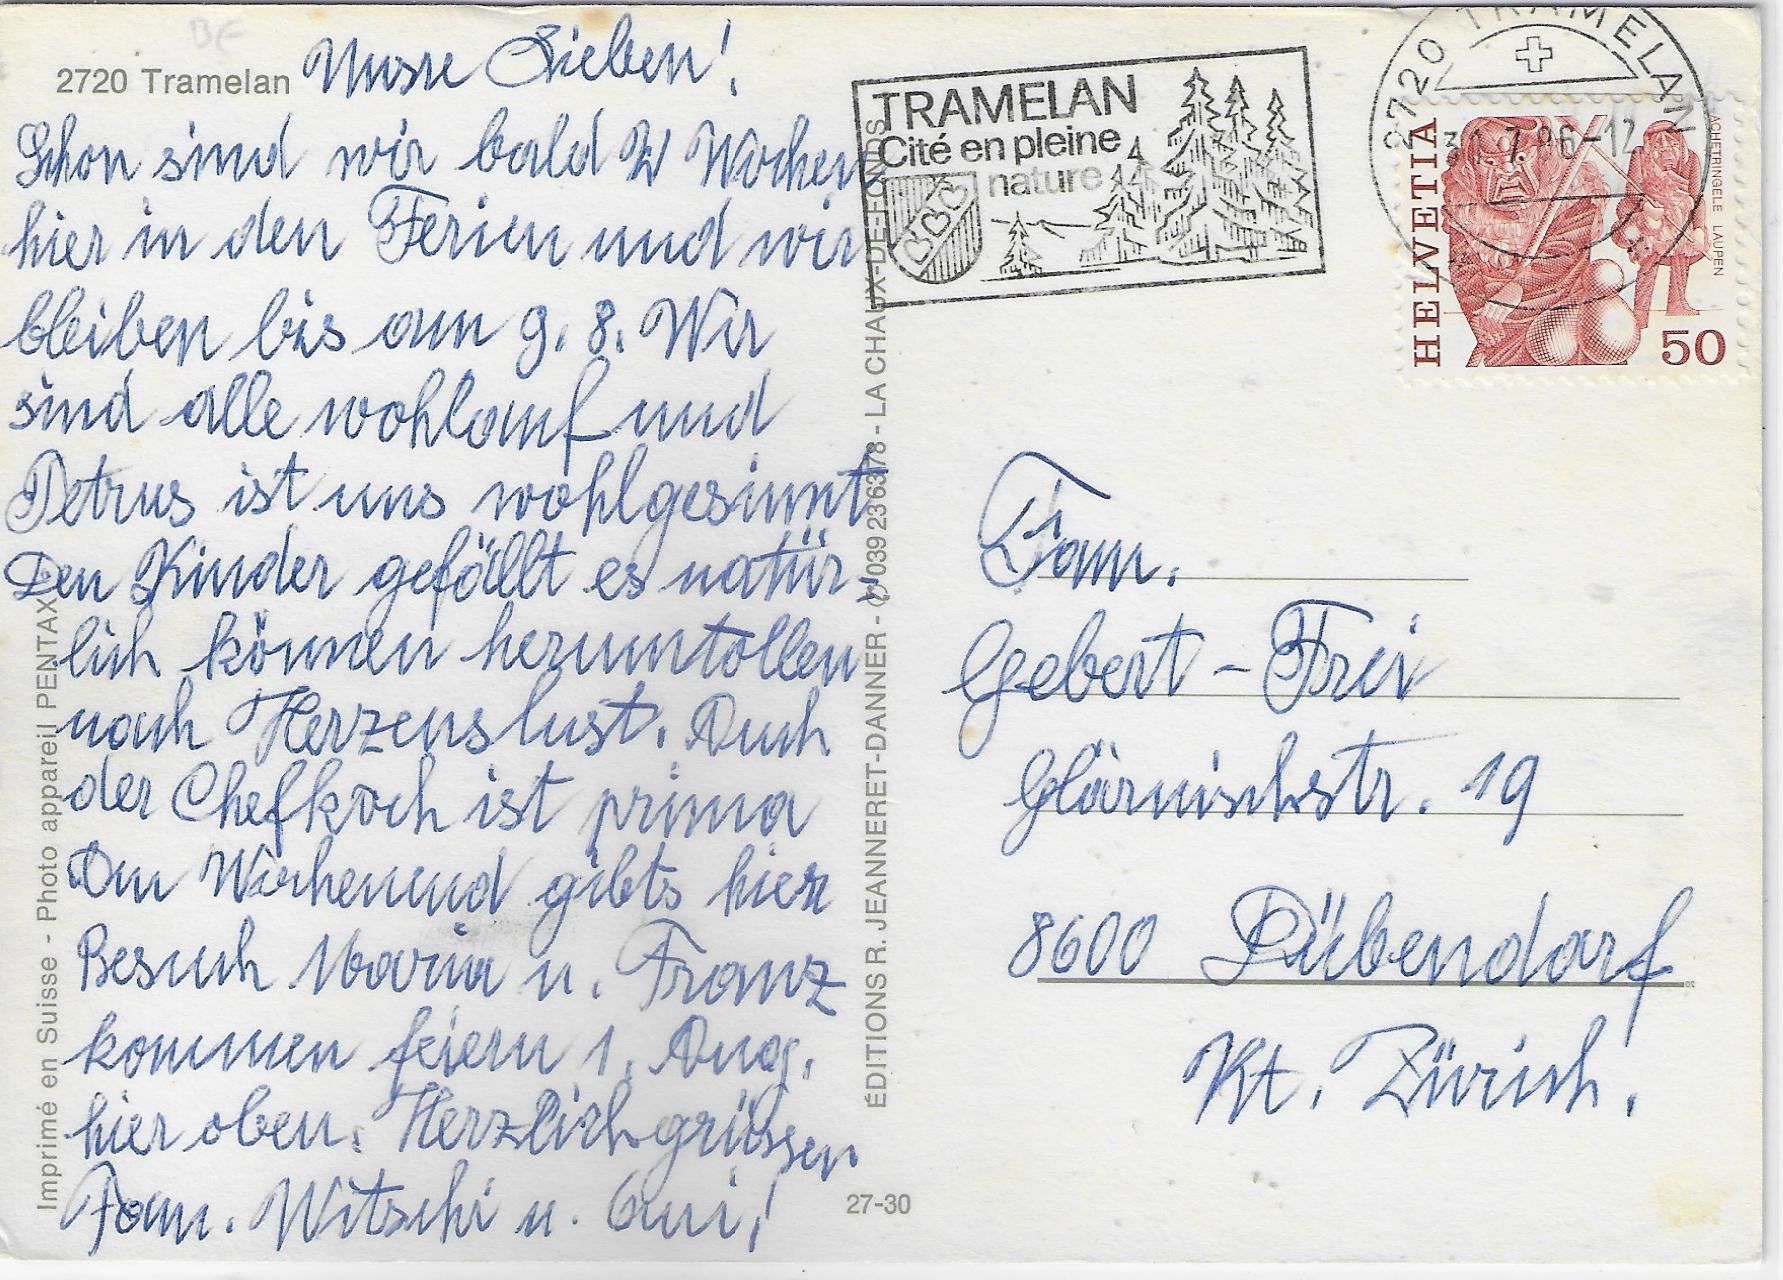 BE
2720 Tramelan
Unsre Lieben!
Schon sind wir bald 2 Wochen
hier in den Ferien und wir
bleiben bis am 9. 8. Wir
sind alle wohlauf und
Petrus ist uns wohlgesinnt
Den Kinder gefällt es natür-
lich können herumtollen
nach Herzenslust. Auch
der Chefkoch ist prima
Am Wochenend gibts hier
Besuch Maria u. Franz
kommen feiern 1. Aug.
hier oben. Herzlich grüssen
Fam. Witschi u.
Imprimé en Suisse - Photo appareil PENTAX
ÉDITIONS R. JEANNERET-DANNER - 039 23 63 78 - LA CHAUX-DE-FONDS
27-30
TRAMELAN
Cité en pleine
nature
2720 TRAMELAN
31.7.86-12
HELVETIA
ACHETRINGELE LAUPEN
50
Fam.
Gebert-Frei
Glärnischstr. 19
8600 Dübendorf
Kt. Zürich.